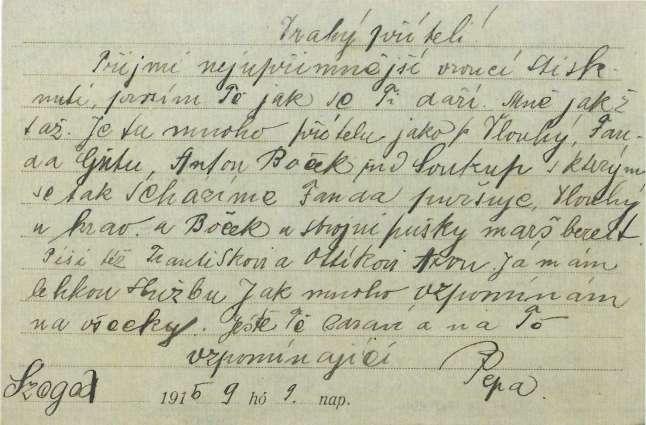 Drahý příteli!
Přijmi nejupřimnější vroucí stisk-
nutí, prosím Tě jak se Ti daří. Mně jakž
taž. Je tu mnoho přátelu jako p Dlouhý, Fan-
da Anton Boček pid Soukup s kterým
se tak scházíme Fanda puršuje, Dlouhý
u krav. a Boček u strojní pušky marš bereit.
Piši též Františkovi a Ottíkovi. Já mam
lehkou službu. Jak mnoho vzpomínám
na všecky. Ještě Tě zdraví a na Tě
vzpomínající
Pepa.
1916 9 hó 9. nap.